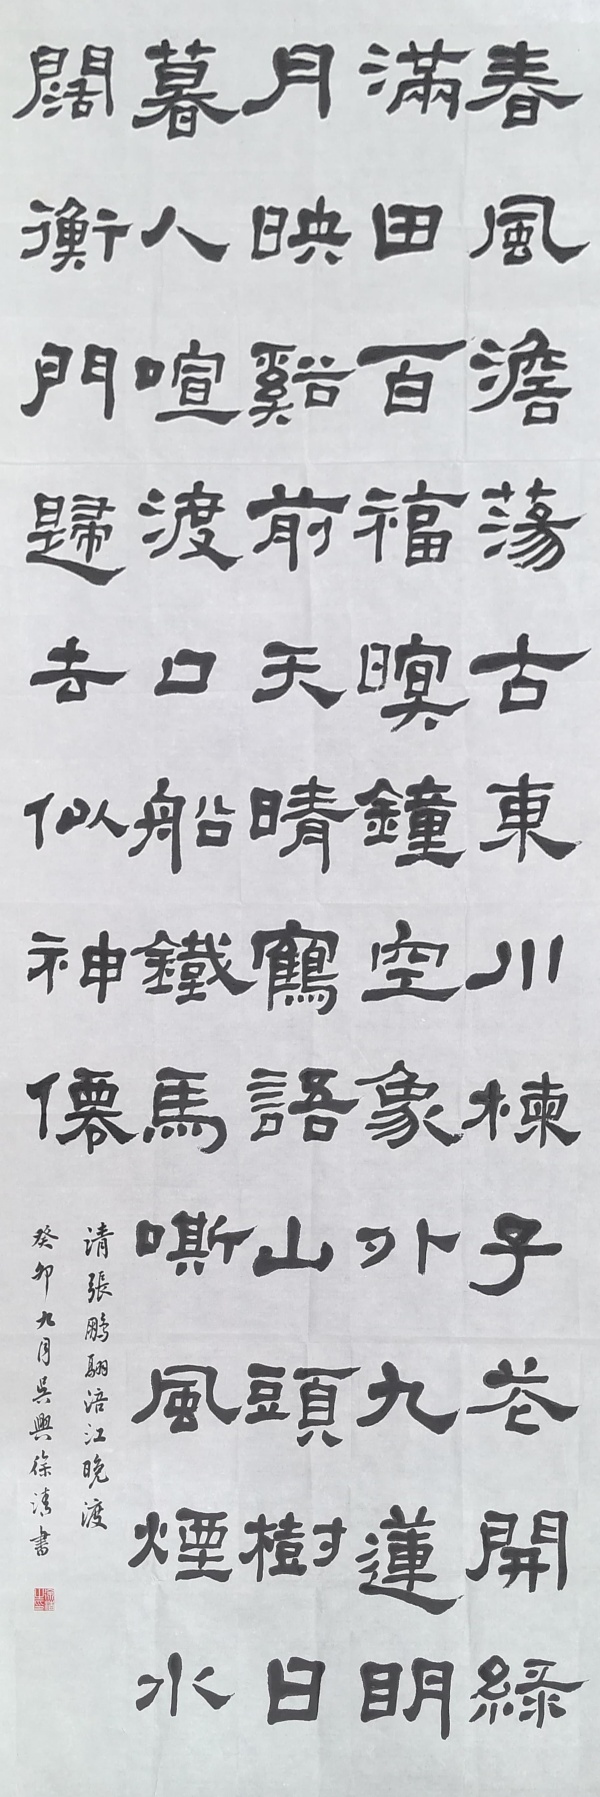 春風澹蕩古東川楝子花開綠
滿田百福暝鐘空象外九蓮明
月映谿前天晴鶴語山頭樹日
暮人喧渡口船鐵馬嘶風煙水
闊衡門歸去似神僊
清張鵬翮涪江晚渡
癸卯九月吳興徐清書